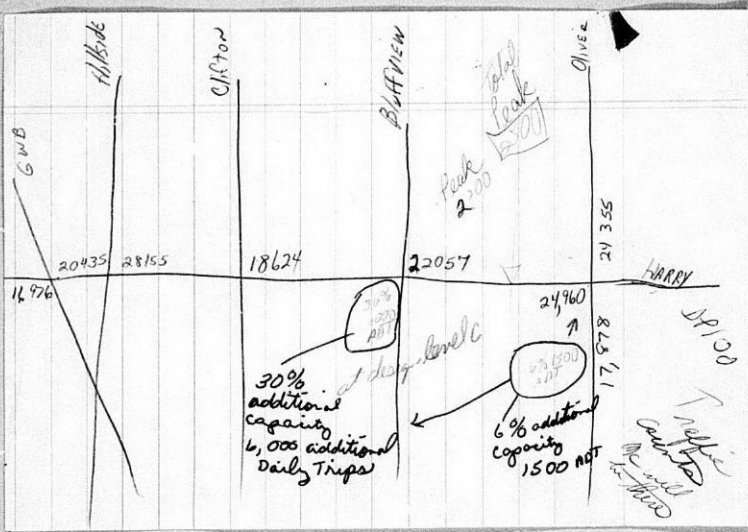 GWB
Hillside
Clifton
Bluffview
Oliver
Total
Peak
2800
Peak
2200
24355
16,976
20435
28155
18624
22057
24,960
HARRY
17,878
30%
ADT
at design level C
6% 1500
ADT
30%
additional
capacity
6,000 additional
Daily Trips
6% additional
capacity
1500 ADT
DP100
Traffic
counts